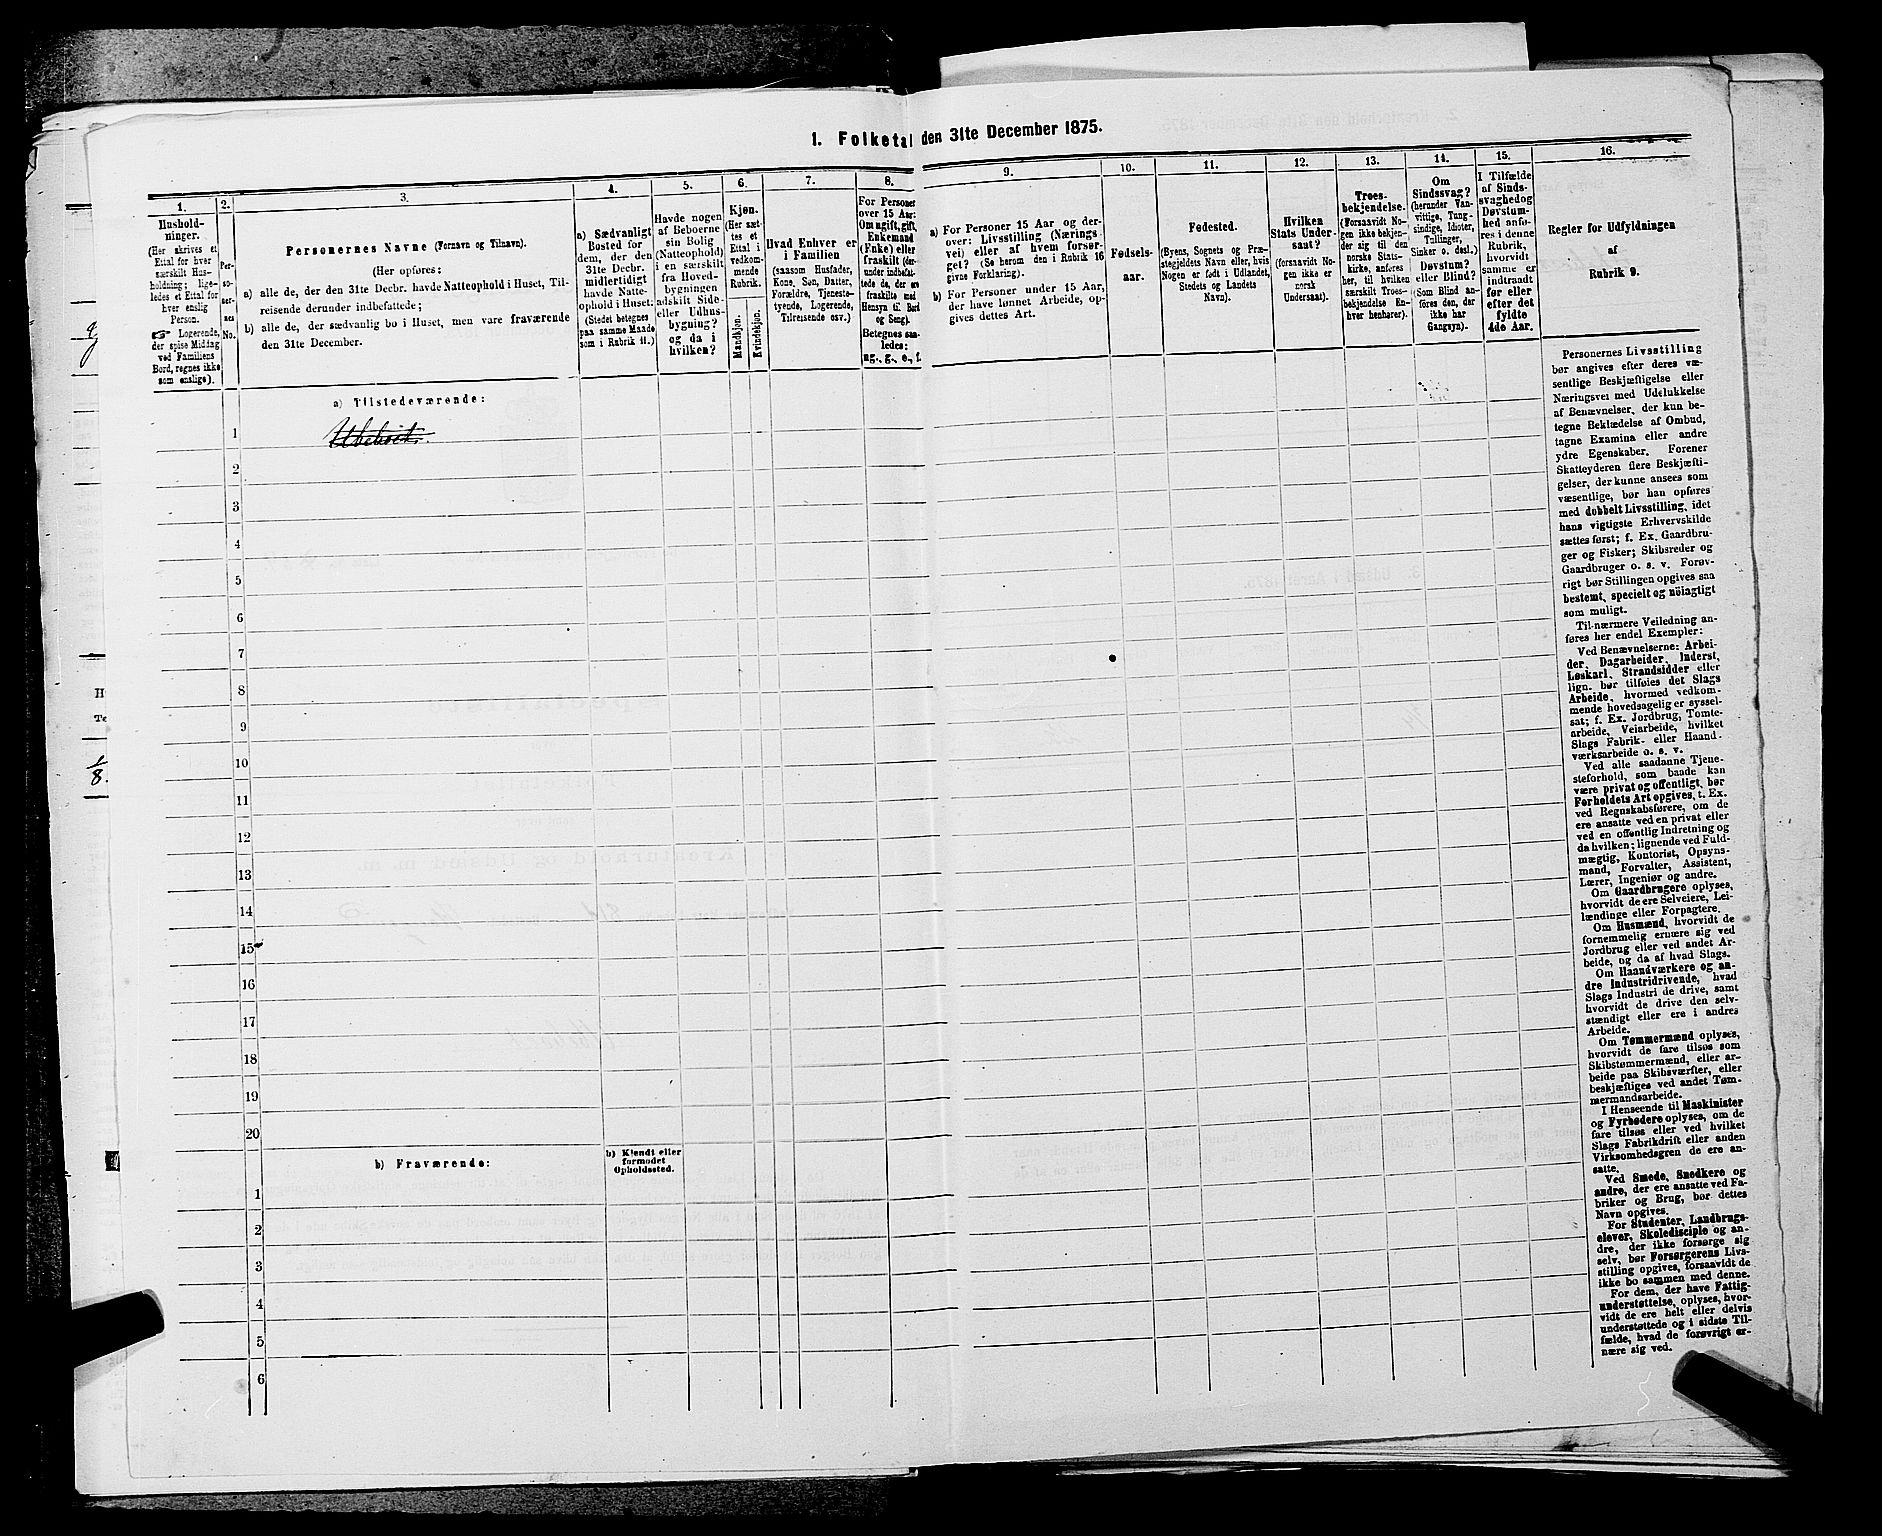 1. Folketal den 31te December 1875.
1. 2. 3. 4. 5. 6. 7. 8. 9. 10. 11. 12. 13. 14. 15. 16.
Hushold-
ninger.
(Her skrives et
Ettal for hver
særskilt Hus-
holdning; lige-
ledes et Ettal for
hver enslig
Person.
☞ Logerende,
der spise Middag
ved Familiens
Bord, regnes ikke
som enslige).
Per-
so-
ner-
nes
No.
Personernes Navne (Fornavn og Tilnavn).
(Her opføres:
a) alle de, der den 31te Decbr. havde Natteophold i Huset, Til-
reisende derunder indbefattede;
b) alle de, der sædvanlig bo i Huset, men vare fraværende
den 31te December.
a) Sædvanligt
Bosted for
dem, der den
31te Decbr.
midlertidigt
havde Natte-
ophold i Huset:
(Stedet betegnes
paa samme Maade
som i Rubrik 11.)
Havde nogen
af Beboerne
sin Bolig
(Natteophold)
i en særskilt
fra Hoved-
bygningen
adskilt Side-
eller Udhus-
bygning?
og da i
hvilken?
Kjøn.
(Her sæt-
tes et
Ettal i
vedkom-
mende
Rubrik.
Mandkjøn.
Kvindekjøn.
Hvad Enhver er
i Familien
(saasom Husfader,
Kone, Søn, Datter,
Forældre, Tjeneste-
tyende, Logerende,
Tilreisende osv.)
For Personer
over 15 Aar:
Om ugift, gift,
Enkemand
(Enke) eller
fraskilt (der-
under indbefat-
tede de, der ere
fraskilte med
Hensyn til Bord
og Seng).
Betegnes saa-
ledes:
ug., g., e., f.
a) For Personer 15 Aar og der-
over: Livsstilling (Nærings
vei) eller af hvem forsør-
get? (Se herom den i Rubrik 16
givne Forklaring).
b) For Personer under 15 Aar,
der have lønnet Arbeide, op-
gives dettes Art.
Fødsels-
aar.
Fødested.
(Byens, Sognets og Præ-
stegjeldets Navn eller, hvis
Nogen er født i Udlandet,
Stedets og Landets
Navn).
Hvilken
Stats Under-
saat?
(forsaavidt No-
gen ikke er
norsk
Undersaat).
Troes-
bekjendelse.
(Forsaavidt No-
gen ikke bekjen-
der sig til den
norske Stats-
kirke, anføres
her, til hvilken
særskilt Troes-
bekjendelse En-
hver henhører).
Om
Sindssvag?
(herunder Van-
vittige, Tung-
sindige, Idioter,
Tullinger,
Sinker o. desl.)
Døvstum?
eller Blind?
(Som Blind an-
føres den, der
ikke har
Gangsyn).
I Tilfælde
af Sinds-
svaghed og
Døvstum-
hed anfø-
res i denne
Rubrik,
hvorvidt
samme er
indtraadt
før eller
efter det
fyldte
4de Aar.
Regler for Udfyldningen
af
Rubrik 9.
a) Tilstedeværende:
1 Ubeboet.
2
3
4
5
6
7
8
9
10
11
12
13
14
15
16
17
18
19
20
b) Fraværende:
b) Kjendt eller
formodet
Opholdssted.
1
2
3
4
5
6
Personernes Livsstilling
bør angives efter deres væ-
sentlige Beskjæftigelse eller
Næringsvei med Udelukkelse
af Benævnelser, der kun be-
tegne Beklædelse af Ombud,
tagne Examina eller andre
ydre Egenskaber. Forener
Skatteyderen flere Beskjæfti-
gelser, der kunne ansees som
væsentlige, bør han opføres
med dobbelt Livsstilling, idet
hans vigtigste Erhvervskilde
sættes først; f. Ex. Gaardbru-
ger og Fisker; Skibsreder og
Gaardbruger o. s. v. Forøv-
rigt bør Stillingen opgives saa
bestemt, specielt og nöiagtigt
som muligt.
Til nærmere Veiledning an-
føres her endel Exempler:
Ved Benævnelserne: Arbei-
der, Dagarbeider, Inderst,
Løskarl, Strandsidder eller
lign. bør tilføies det Slags
Arbeide, hvormed vedkom-
mende hovedsagelig er syssel-
sat; f. Ex. Jordbrug, Tomte-
arbeide, Veiarbeide, hvilket
Slags Fabrik- eller Haand-
værksarbeide o. s. v.
Ved alle saadanne Tjene-
steforhold, som baade kan
være privat og offentligt, bør
Forholdets Art opgives, t. Ex.
ved Regnskabsførere, om de
ere ansatte ved en privat eller
ved en offentlig Indretning og
da hvilken; lignende ved Fuld-
mægtig, Kontorist, Opsyns-
mand, Forvalter, Assistent,
Lærer, Ingeniør og andre.
Om Gaardbrugere oplyses,
hvorvidt de ere Selveiere, Lei-
lændinge eller Forpagtere.
Om Husmænd, hvorvidt de
fornemmelig ernære sig ved
Jordbrug eller ved andet Ar-
beide, og da af hvad Slags.
Om Haandværkere og an-
dre Industridrivende, hvad
Slags Industri de drive, samt
hvorvidt de drive den selv-
stændigt eller ere i andres
Arbeide.
Om Tømmermænd oplyses,
hvorvidt de fare tilsøs som
Skibstømmermænd, eller ar-
beide paa Skibsværfter, eller
beskjæftiges ved andet Tøm-
mermandsarbeide.
I Henseende til Maskinister
og Fyrbødere oplyses, om de
fare tilsøs eller ved hvilket
Slags Fabrikdrift eller anden
Virksomhedsgren de ere an-
satte.
Ved Smede, Snedkere og
andre, der ere ansatte ved Fa-
briker og Brug, bør dettes
Navn opgives.
For Studenter, Landbrugs-
elever, Skoledisciple og an-
dre, der ikke forsørge sig
selv, bør Forsørgerens Livs-
stilling opgives, forsaavidt de
ikke bo sammen med denne.
For dem, der have Fattig-
understøttelse, oplyses, hvor-
vidt de ere helt eller delvis
understøttede og i sidste Til-
fælde, hvad de forøvrigt er-
nære sig ved.